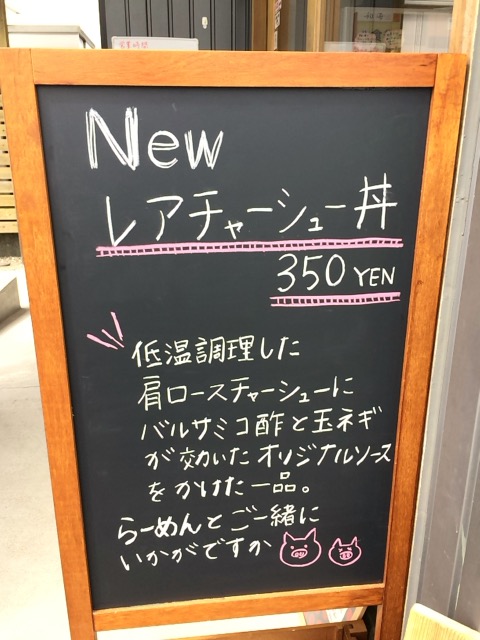 営業時間
New
レアチャーシュー丼
350 YEN
低温調理した
肩ロースチャーシューに
バルサミコ酢と玉ネギ
が効いたオリジナルソース
をかけた一品。
らーめんとご一緒に
いかがですか